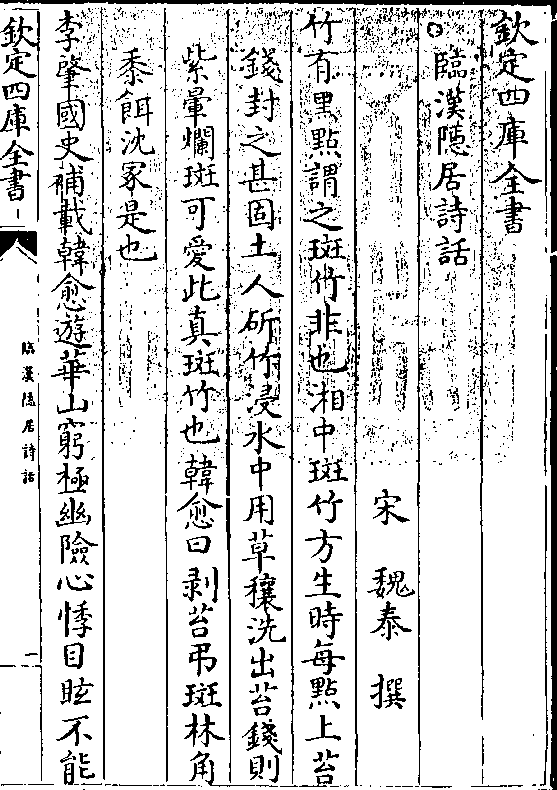 欽定四庫全書
臨漢隱居詩話
宋 魏泰 撰
竹有黒點謂之斑竹非也湘中斑竹方生時每點上苔
錢封之甚固土人斫竹浸水中用草穰洗出苔錢則
紫暈爛斑可愛此真斑竹也韓愈曰剥苔弔斑林角
黍餌沈冢是也
李肇國史補載韓愈遊華山窮極幽險心悸目眩不能
欽定四庫全書
臨漢隱居詩話
一